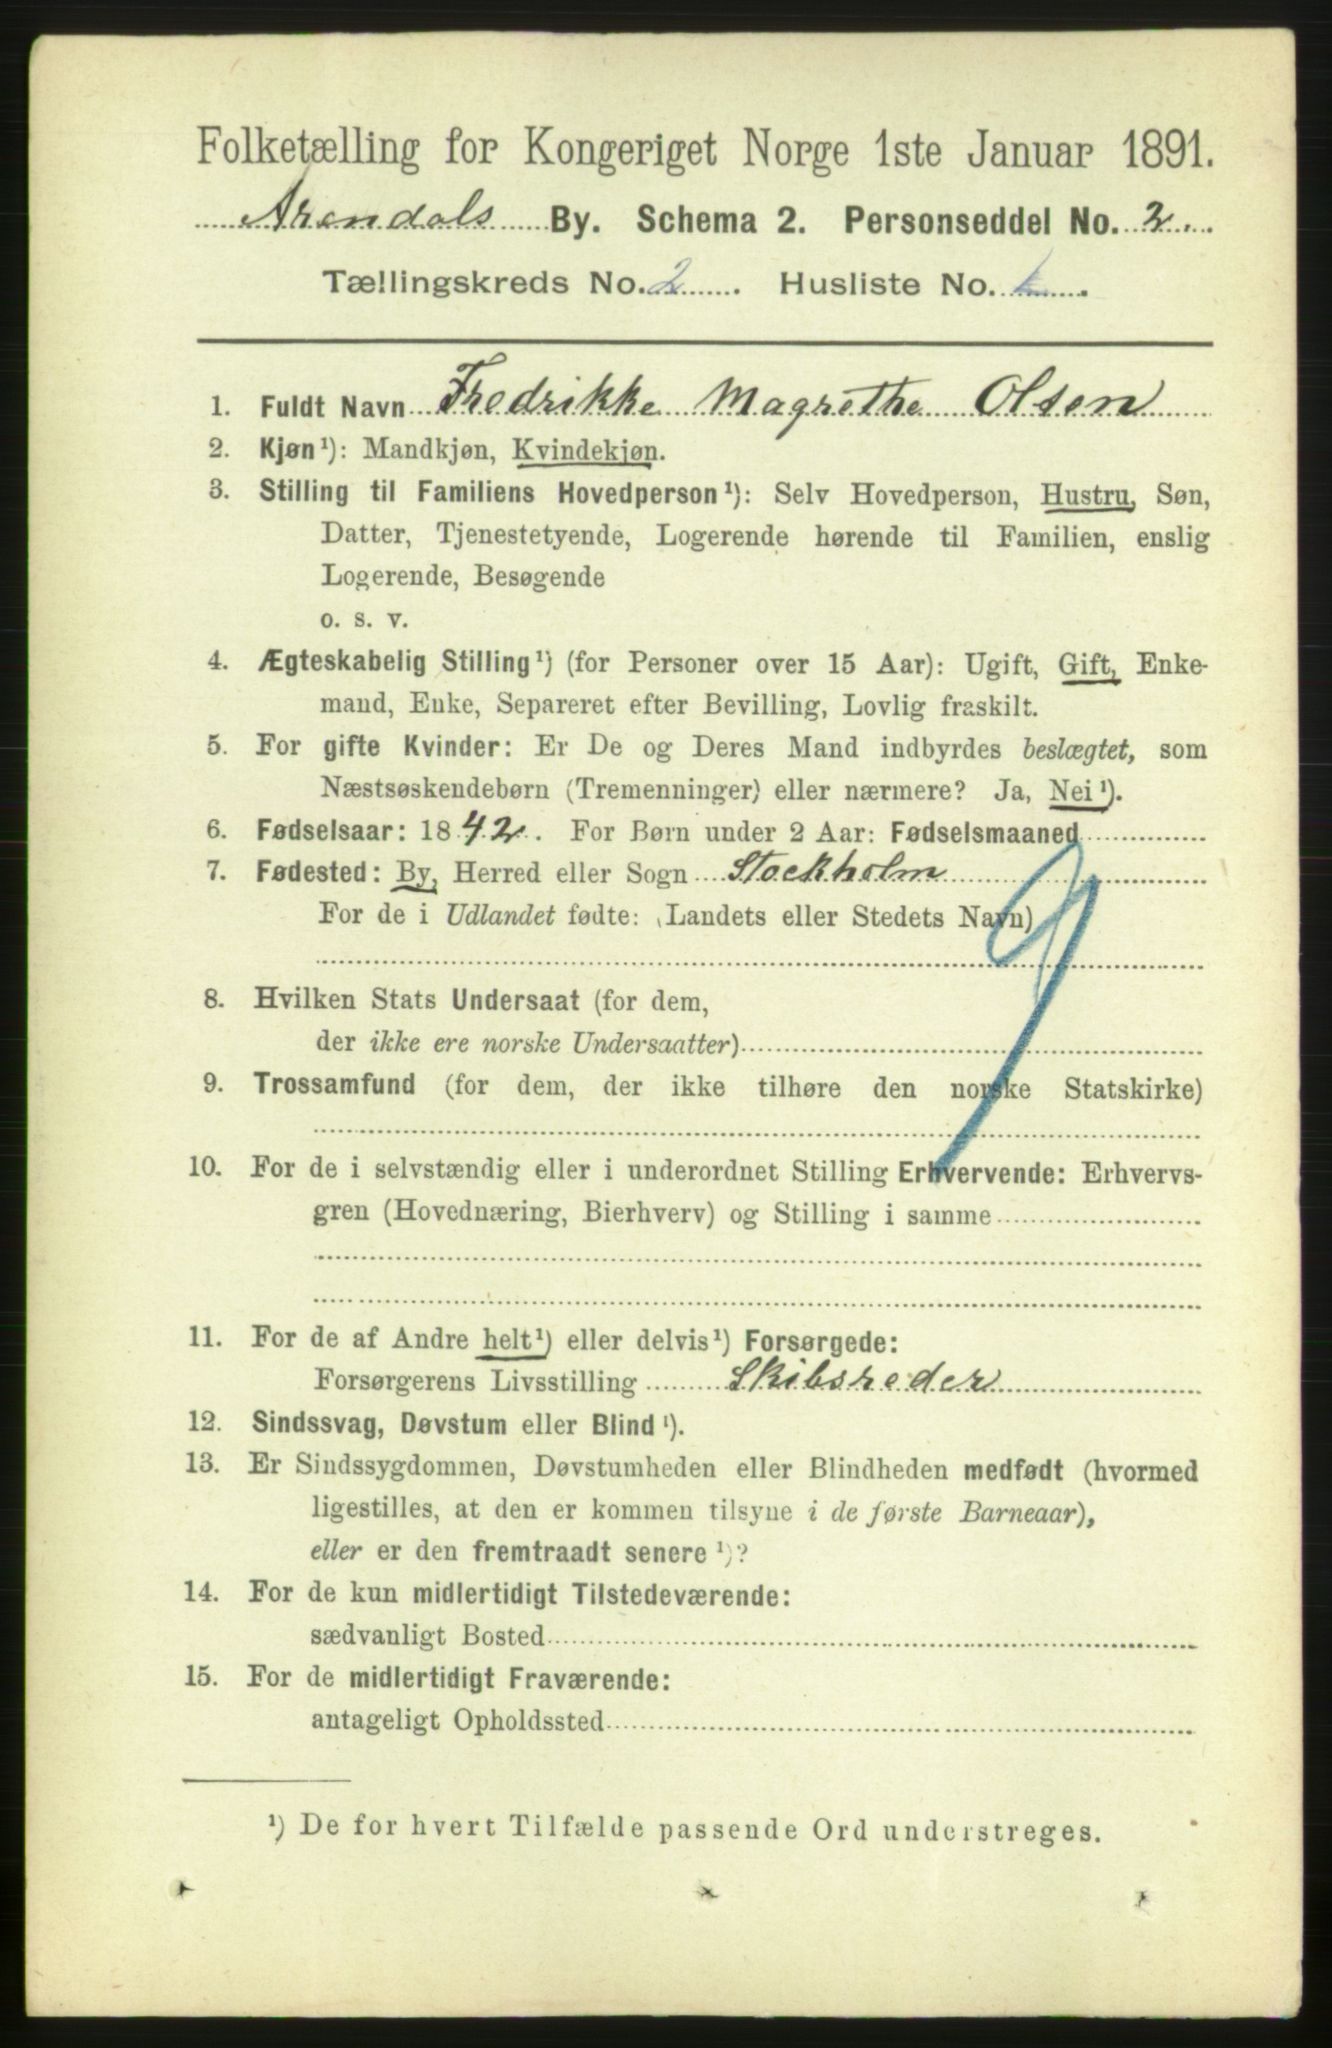 Folketælling for Kongeriget Norge 1ste Januar 1891.
Arendals By. Schema 2. Personseddel No. 2.
Tællingskreds No. 2. Husliste No. .
1. Fuldt Navn Fredrikke Magrethe Olsen
2. Kjøn¹): Mandkjøn, Kvindekjøn.
3. Stilling til Familiens Hovedperson¹): Selv Hovedperson, Hustru, Søn,
Datter, Tjenestetyende, Logerende hørende til Familien, enslig
Logerende, Besøgende
o. s. v.
4. Ægteskabelig Stilling¹) (for Personer over 15 Aar): Ugift, Gift, Enke-
mand, Enke, Separeret efter Bevilling, Lovlig fraskilt.
5. For gifte Kvinder: Er De og Deres Mand indbyrdes beslægtet, som
Næstsøskendebørn (Tremenninger) eller nærmere? Ja, Nei¹).
6. Fødselsaar: 1842. For Børn under 2 Aar: Fødselsmaaned
7. Fødested: By, Herred eller Sogn Stockholm
For de i Udlandet fødte: (Landets eller Stedets Navn)
9
8. Hvilken Stats Undersaat (for dem,
der ikke ere norske Undersaatter)
9. Trossamfund (for dem, der ikke tilhøre den norske Statskirke)
10. For de i selvstændig eller i underordnet Stilling Erhvervende: Erhvervs-
gren (Hovednæring, Bierhverv) og Stilling i samme
11. For de af Andre helt¹) eller delvis¹) Forsørgede:
Forsørgerens Livsstilling Skibsreder
12. Sindssvag, Døvstum eller Blind¹).
13. Er Sindssygdommen, Døvstumheden eller Blindheden medfødt (hvormed
ligestilles, at den er kommen tilsyne i de første Barneaar),
eller er den fremtraadt senere¹)?
14. For de kun midlertidigt Tilstedeværende:
sædvanligt Bosted
15. For de midlertidigt Fraværende:
antageligt Opholdssted
¹) De for hvert Tilfælde passende Ord understreges.